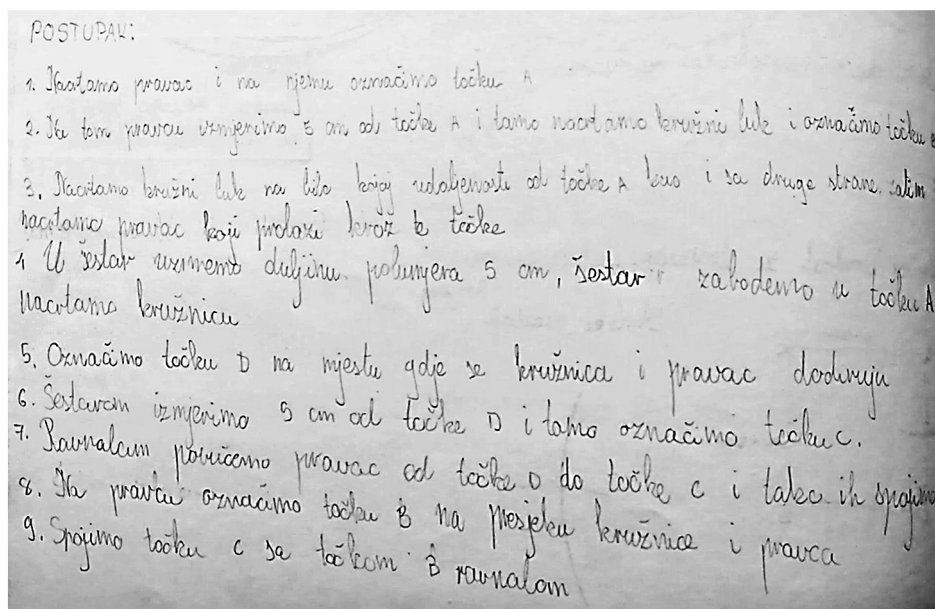 POSTUPAK:
1. Nacrtamo pravac i na njemu označimo točku A
2. Na tom pravcu izmjerimo 5 cm od točke A i tamo nacrtamo kružni luk i označimo točku B
3. Nacrtamo kružni luk na bilo kojoj udaljenosti od točke A kao i sa druge strane zatim
nacrtamo pravac koji prolazi kroz te točke
4 U šestar uzmemo duljinu polumjera 5 cm, šestar zabodemo u točku A
nacrtamo kružnicu
5. Označimo točku D na mjestu gdje se kružnica i pravac dodiruju
6. Šestarom izmjerimo 5 cm od točke D i tamo označimo točku c.
7. Ravnalom povučemo pravac od točke D do točke c i tako ih spojimo
8. Na pravcu označimo točku B na presjeku kružnice i pravca
9. Spojimo točku c sa točkom B ravnalom